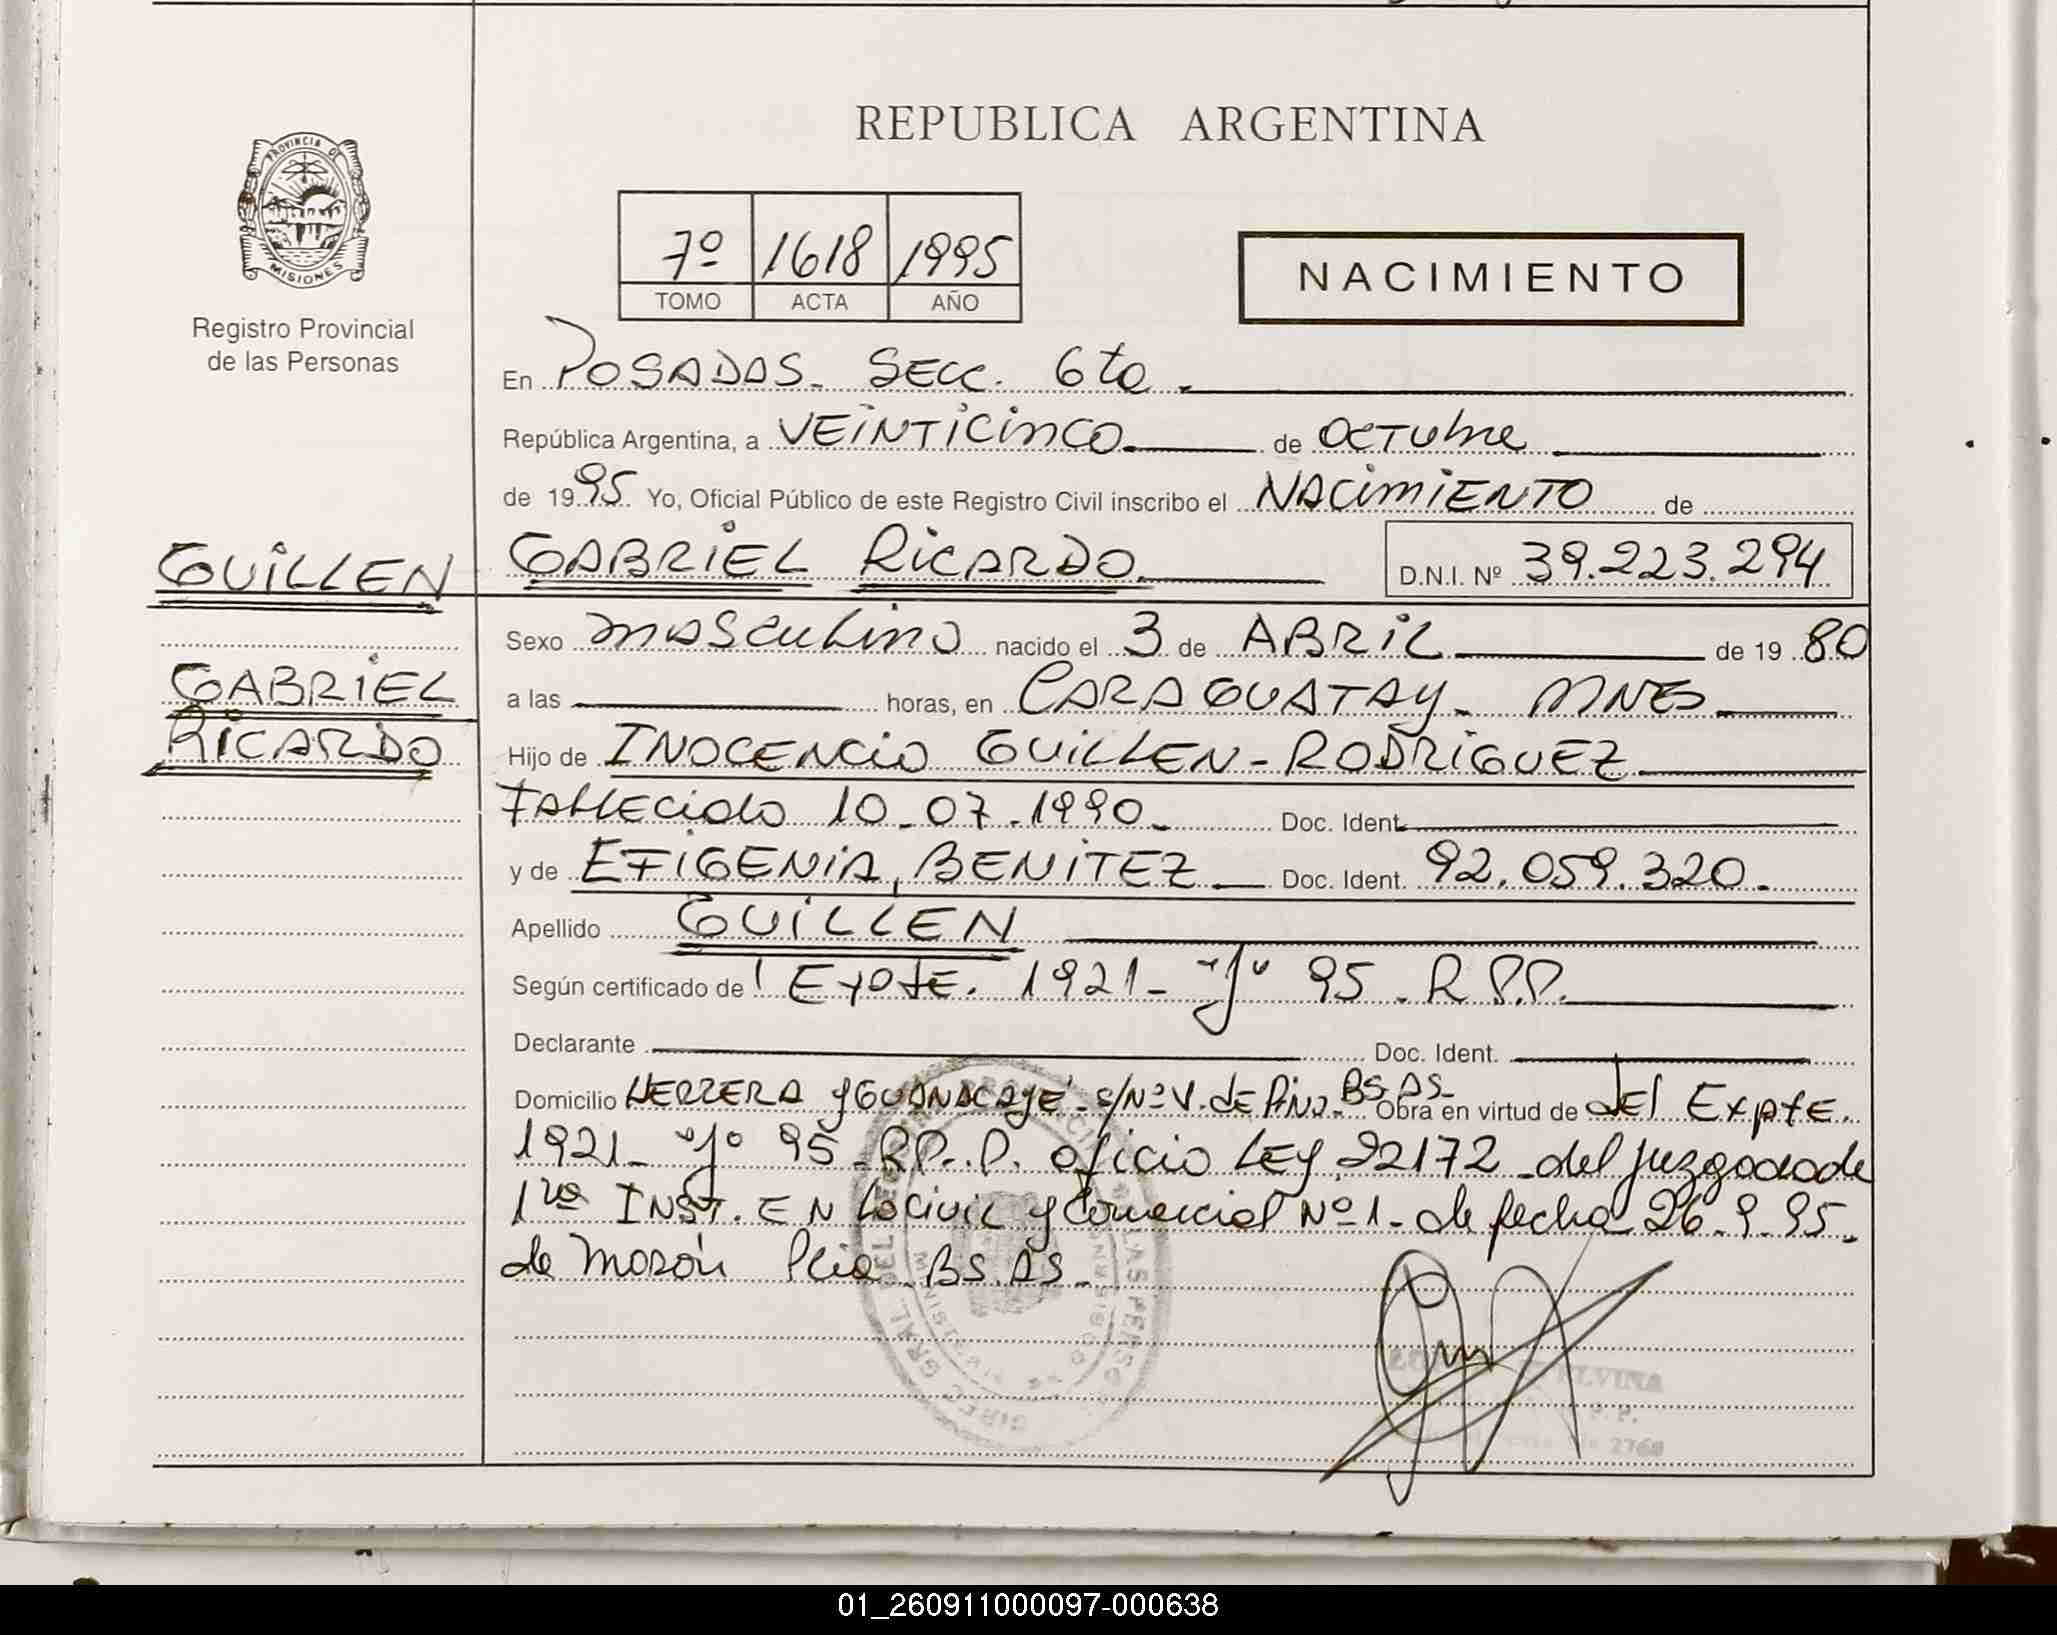 REPUBLICA ARGENTINA
PROVINCIA DE
MISIONES
Registro Provincial
de las Personas
7º 1618 1995
TOMO ACTA AÑO
NACIMIENTO
En POSADAS - SECC. 6ta.
República Argentina, a VEINTICINCO de OCTUbre
de 1995. Yo, Oficial Público de este Registro Civil inscribo el NACIMIENTO de
GUILLEN GABRIEL RICARDO D.N.I. Nº 39.223.294
Sexo masculino nacido el 3 de ABRIL de 1980
GABRIEL a las horas, en CARAGUATAY - MNES
RICARDO Hijo de INOCENCIO GUILLEN - RODRIGUEZ
Fallecido 10-07-1990 - Doc. Ident.
y de EFIGENIA, BENITEZ Doc. Ident. 92.059.320.
Apellido GUILLEN
Según certificado de Expte. 1921 - "J" 95 - R.P.P.
Declarante Doc. Ident.
Domicilio HERRERA Y GUANACAYE - s/Nº V. de Pino - BS.AS - Obra en virtud de del Expte.
1921 - "J" 95 - R.P.P. oficio LEY 22172 - del juzgado de
1ra INST. EN Lo civil y Comercial Nº 1 - de fecha 26-9-95 -
de Morón Pcia BS.AS -
ELVINA
01_260911000097-000638